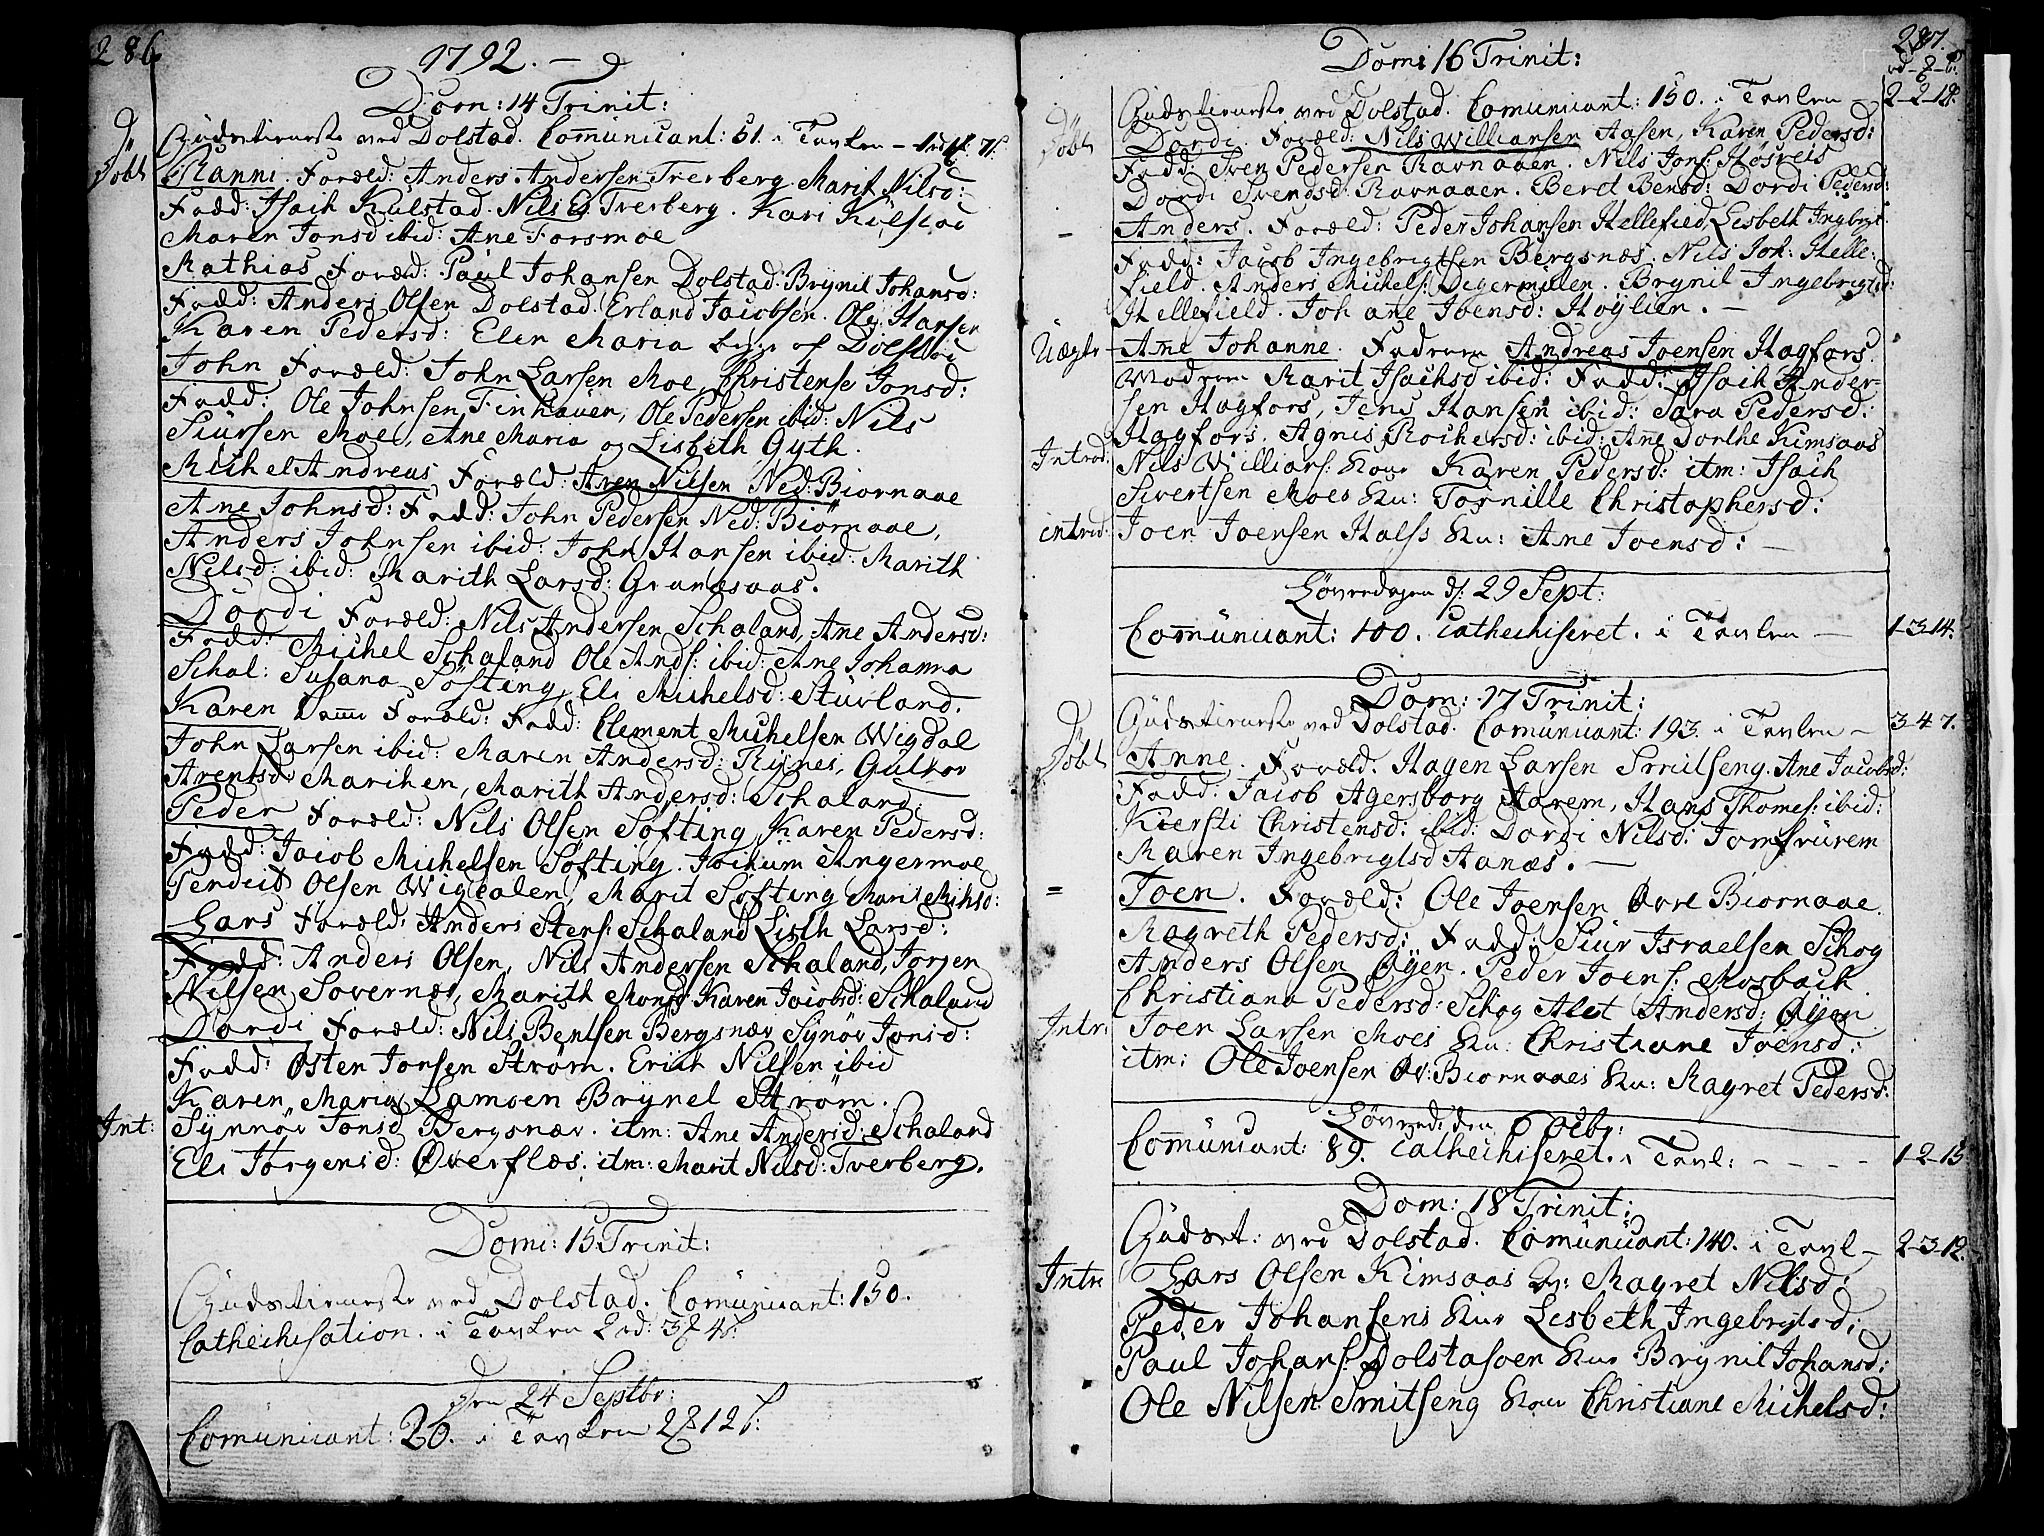 286
1792. —
Dom: 14 Trinit:
Døbt
Gudstieneste ved Dolstad. Comunicant: 51. i Tavlen —
Ranni. Foræld: Anders Andersen Trerberg. Marit Nilsd:
Fadd: Isach Kulstad. Nils Trerberg. Kari Kulstad
Maren Jonsd ibid: Ane Forsmoe
Mathias Foræld: Paul Johansen Dolstad. Brynil Johansd:
Fadd: Anders Olsen Dolstad. Erland Jacobsen. Ole Hansen
Karen Pedersd: Elen Maria af Dolstad
John Foræld: John Larsen Moe, Christense Jonsd:
Fadd: Ole Johnsen, Finhauen, Ole Pedersen ibid: Nils
Siursen Moe, Ane Maria og Lisbeth Gyth.
Michel Andreas Foræld: Aren Nilsen Ned: Biornaae
Ane Johnsd: Fadd: John Pedersen Ned: Biörnaae,
Anders Johnsen ibid: John Hansen ibid: Marith
Nilsd: ibid: Marith Larsd: Granaasaas.
Dordi Foræld: Nils Andersen Schaland, Ane Andersd:
Fadd: Michel Schaland Ole Ands: ibid: Ane Johanna
Schal: Susana Søfting, Eli Michelsd: Sturland.
Karen Foræld: Fadd: Clement Michelsen Wigdal
John Larsen ibid: Maren Andersd: Rynes, Gulvor
Arentsd: Marihen, Marith Andersd: Schaland.
Peder Foræld: Nils Olsen Søfting, Karen Pedersd:
Fadd: Jacob Michelsen Søfting. Jochum Angermoe
Olsen Wigdalen, Marit Søfting Marit Miksd:
Lars Foræld: Anders Stens: Schaland Listh Larsd:
Fadd: Anders Olsen, Nils Andersen Schaland, Jorgen
Nilsen Sovernæs, Marith Monsd: Karen Jacobsd: Schaland
Dordi Foræld: Nils Bentsen Bergsnæv Synøv Jonsd:
Fadd: Østen Jonsen Strøm. Erich Nilsen ibid
Karen Maria Lamoen Brynel Strøm.
Int: Synnøv Jonsd Bergsnæv. itm: Ane Andersd: Schaland
Eli Jørgensd: Øverflæs. itm: Marit Nilsd: Tverberg.
Domi: 15 Trinit:
Gudstieneste ved Dolstad. Comunicant: 150.
Cathechisation. i Tavlen 2 rd: 3
den 24 Septbr:
Comunicant: 26. i Tavlen
287.
Dom: 16 Trinit:
Døbt
Gudstieneste ved Dolstad. Comunicant: 150. i Tavlen — 2-2-12.
Dordi. Foræld: Nils Williansen Aasen, Karen Pedersd:
Fadd: Sven Pedersen Ravnaaen. Nils Jons: Høsveis
Dordi Svendsd: Ravnaaen. Beret Bensd: Dordi Pedersd:
Anders. Foræld: Peder Johansen Hellefield, Lisbeth Ingbrgt
Fadd: Jacob Ingebrigtsen Bergsnæs. Nils Joh: Helle:
field. Anders Michels: Degermillen. Brynil Ingebrigtsd:
Hellefield. Johane Joensd: Høylien. —
Uægte
Ane Johanne. Faderen Andreas Joensen Hagfors.
Moderen Marit Isachsd ibid: Fadd: Isach Ander-
sen Hagfors, Jens Hansen ibid: Sara Pedersd:
Hagfors. Agnis Rochersd: ibid: Ane Dorthe Kimsaas
Introd: Nils Willians: Kone Karen Pedersd: itm: Isach
Sivertsen Moes Ku: Tornille Christophersd:
introd: Joen Joensen Halss Ku: Ane Joensd: —
Løverdagen d: 29 Sept:
Comunicant: 100. Cathechiseret. i Tavlen — 1-3-14.
Dom: 17 Trinit:
Døbt
Gudstieneste ved Dolstad. Comunicant: 193. i Tavlen — 3-4-7.
Anne. Foræld. Hagen Larsen Smitseng. Ane Jacobsd:
Fadd: Jacob Agersborg Aarem, Hans Thomes: ibid:
Kiersti Christensd: ibid: Dordi Nilsd: Jomfrurem
Maren Ingebrigtsd Aanæs. —
=
Joen. Foræld: Ole Joensen Øvre Biornaae.
Magreth Pedersd: Fadd: Siur Israelsen Schog
Anders Olsen Øyen. Peder Joens: Mosbach
Christiana Pedersd: Schog Alet Andersd: Øyen
Intr: Joen Larsen Moes Ku: Christiane Joensd:
itm: Ole Joensen Øv: Biornaaes Ku: Magret Pedersd:
Løverd: den 6 Octbr:
Comunicant: 89. Cathechiseret. i Tavl: - - - - 1-2-15
Dom: 18 Trinit:
Gudst: ved Dolstad. Comunicant: 140. i Tavl — 2-3-12.
Intr: Lars Olsen Kimsaas Ku: Magret Nilsd:
Peder Johansens Kue Lisbeth Ingebrigtsd:
Paul Johans: Dolstasoen Kue Brynil Johansd:
Ole Nilsen Smitseng Kone Christiane Michelsd: